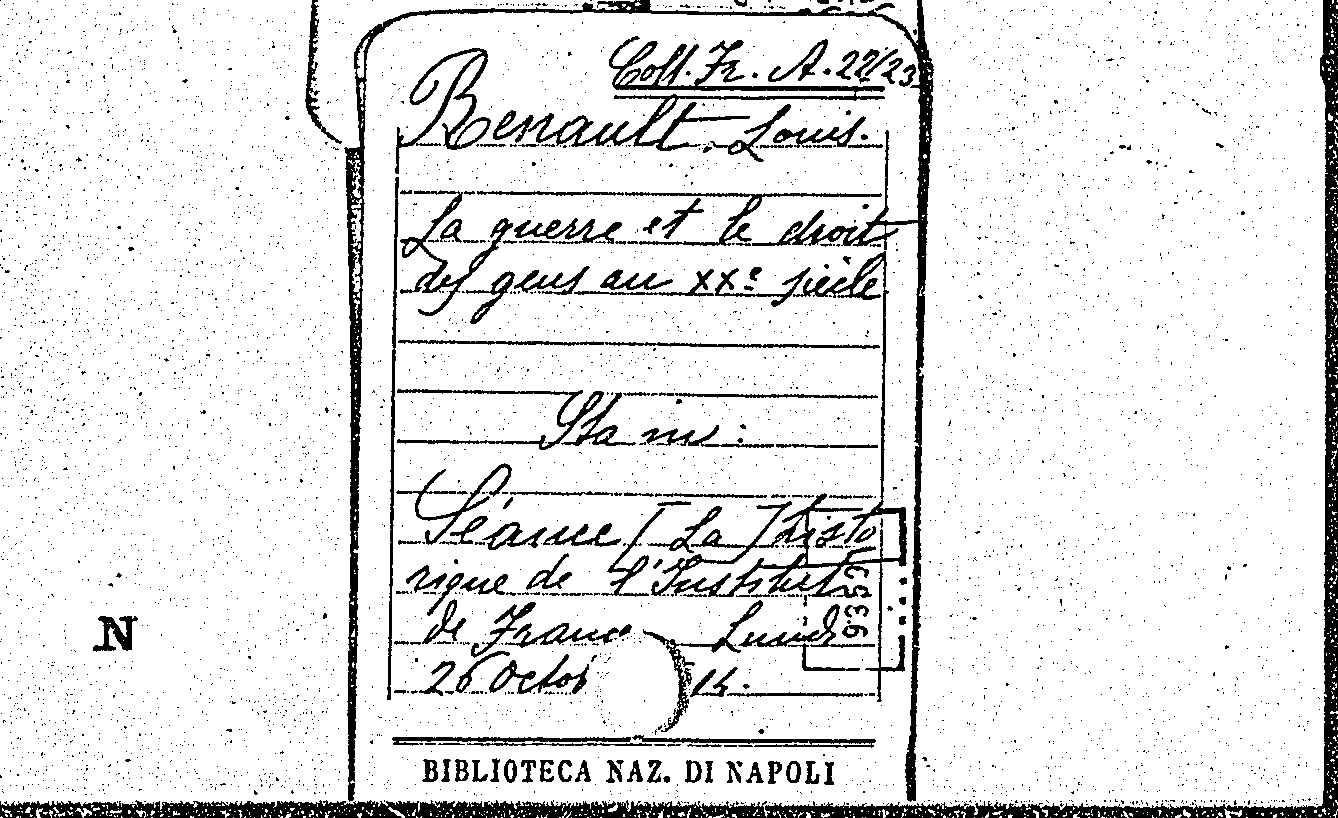 Coll. Fr. A. 22/23
Renault, Louis.
La guerre et le droit
des gens au XXe siècle
Sta in:
Séance [La] histo
rique de l'Institut
de France Lundi
26 Octob 14.
N
BIBLIOTECA NAZ. DI NAPOLI